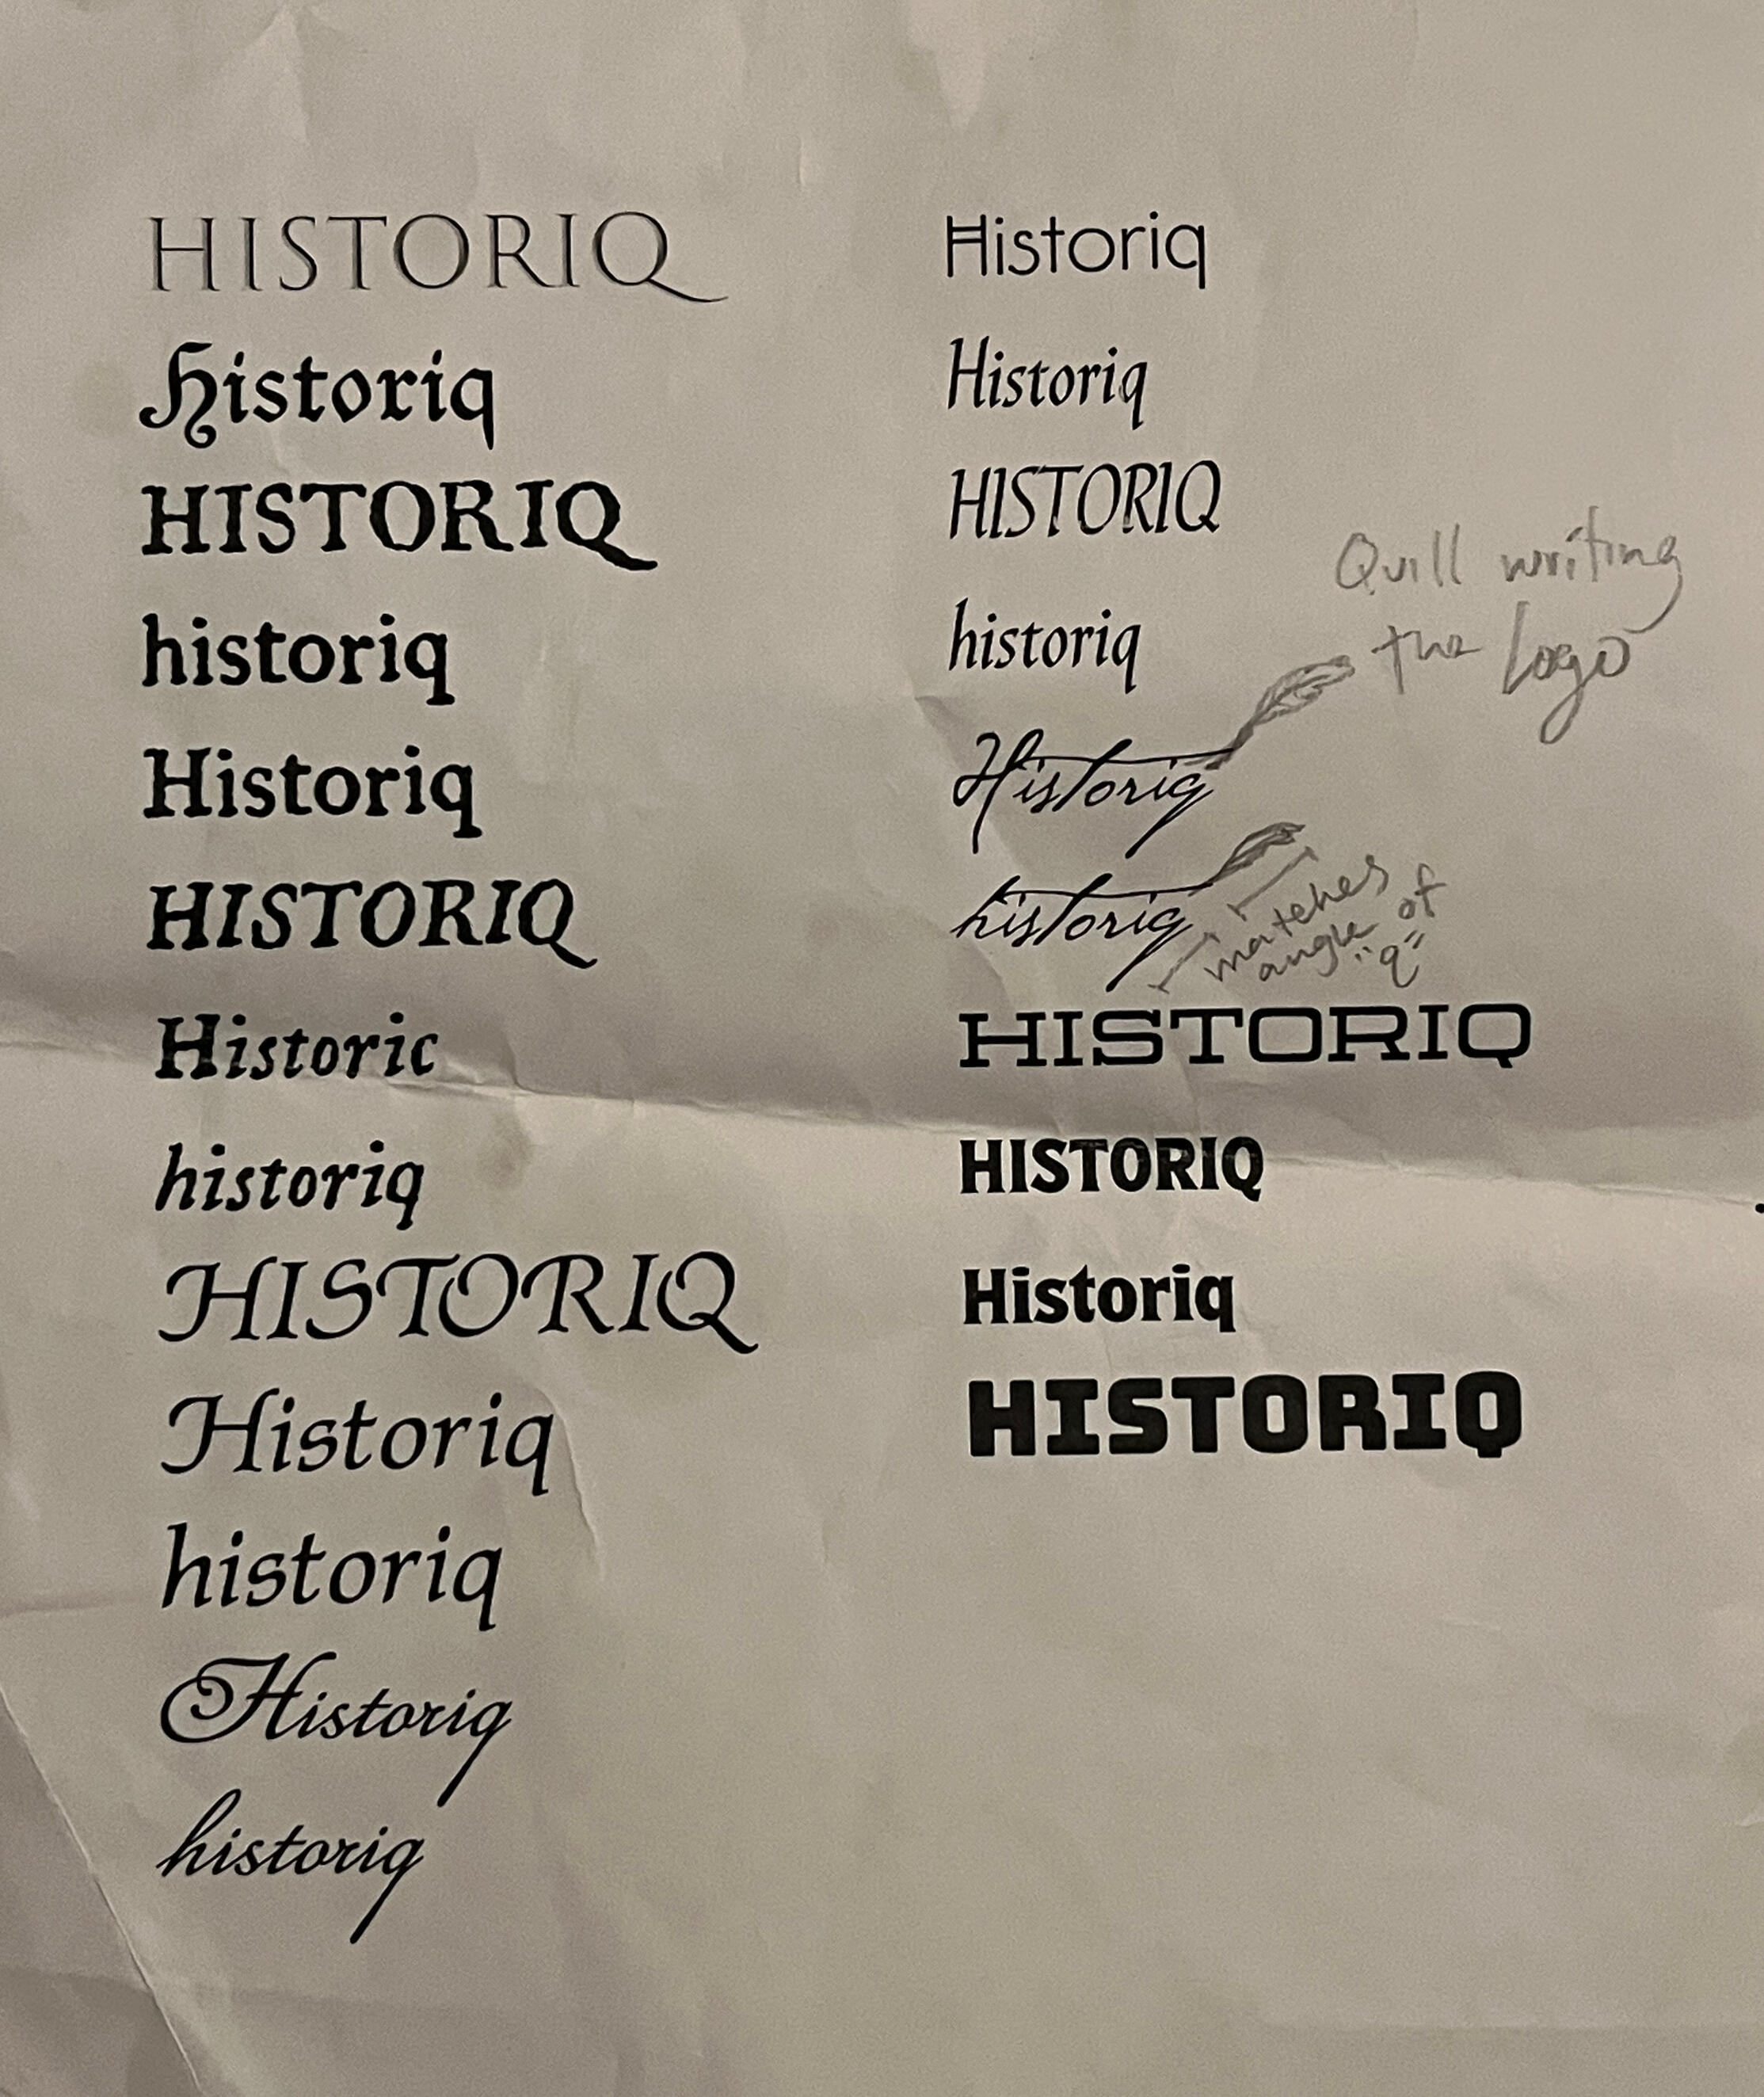 HISTORIQ
Historiq
HISTORIQ
historiq
Historiq
HISTORIQ
Historic
historiq
HISTORIQ
Historiq
historiq
Historiq
historiq
Historiq
Historiq
HISTORIQ
historiq
Quill writing
the logo
Historiq
historiq
matches
angle of
"q"
HISTORIQ
HISTORIQ
Historiq
HISTORIQ